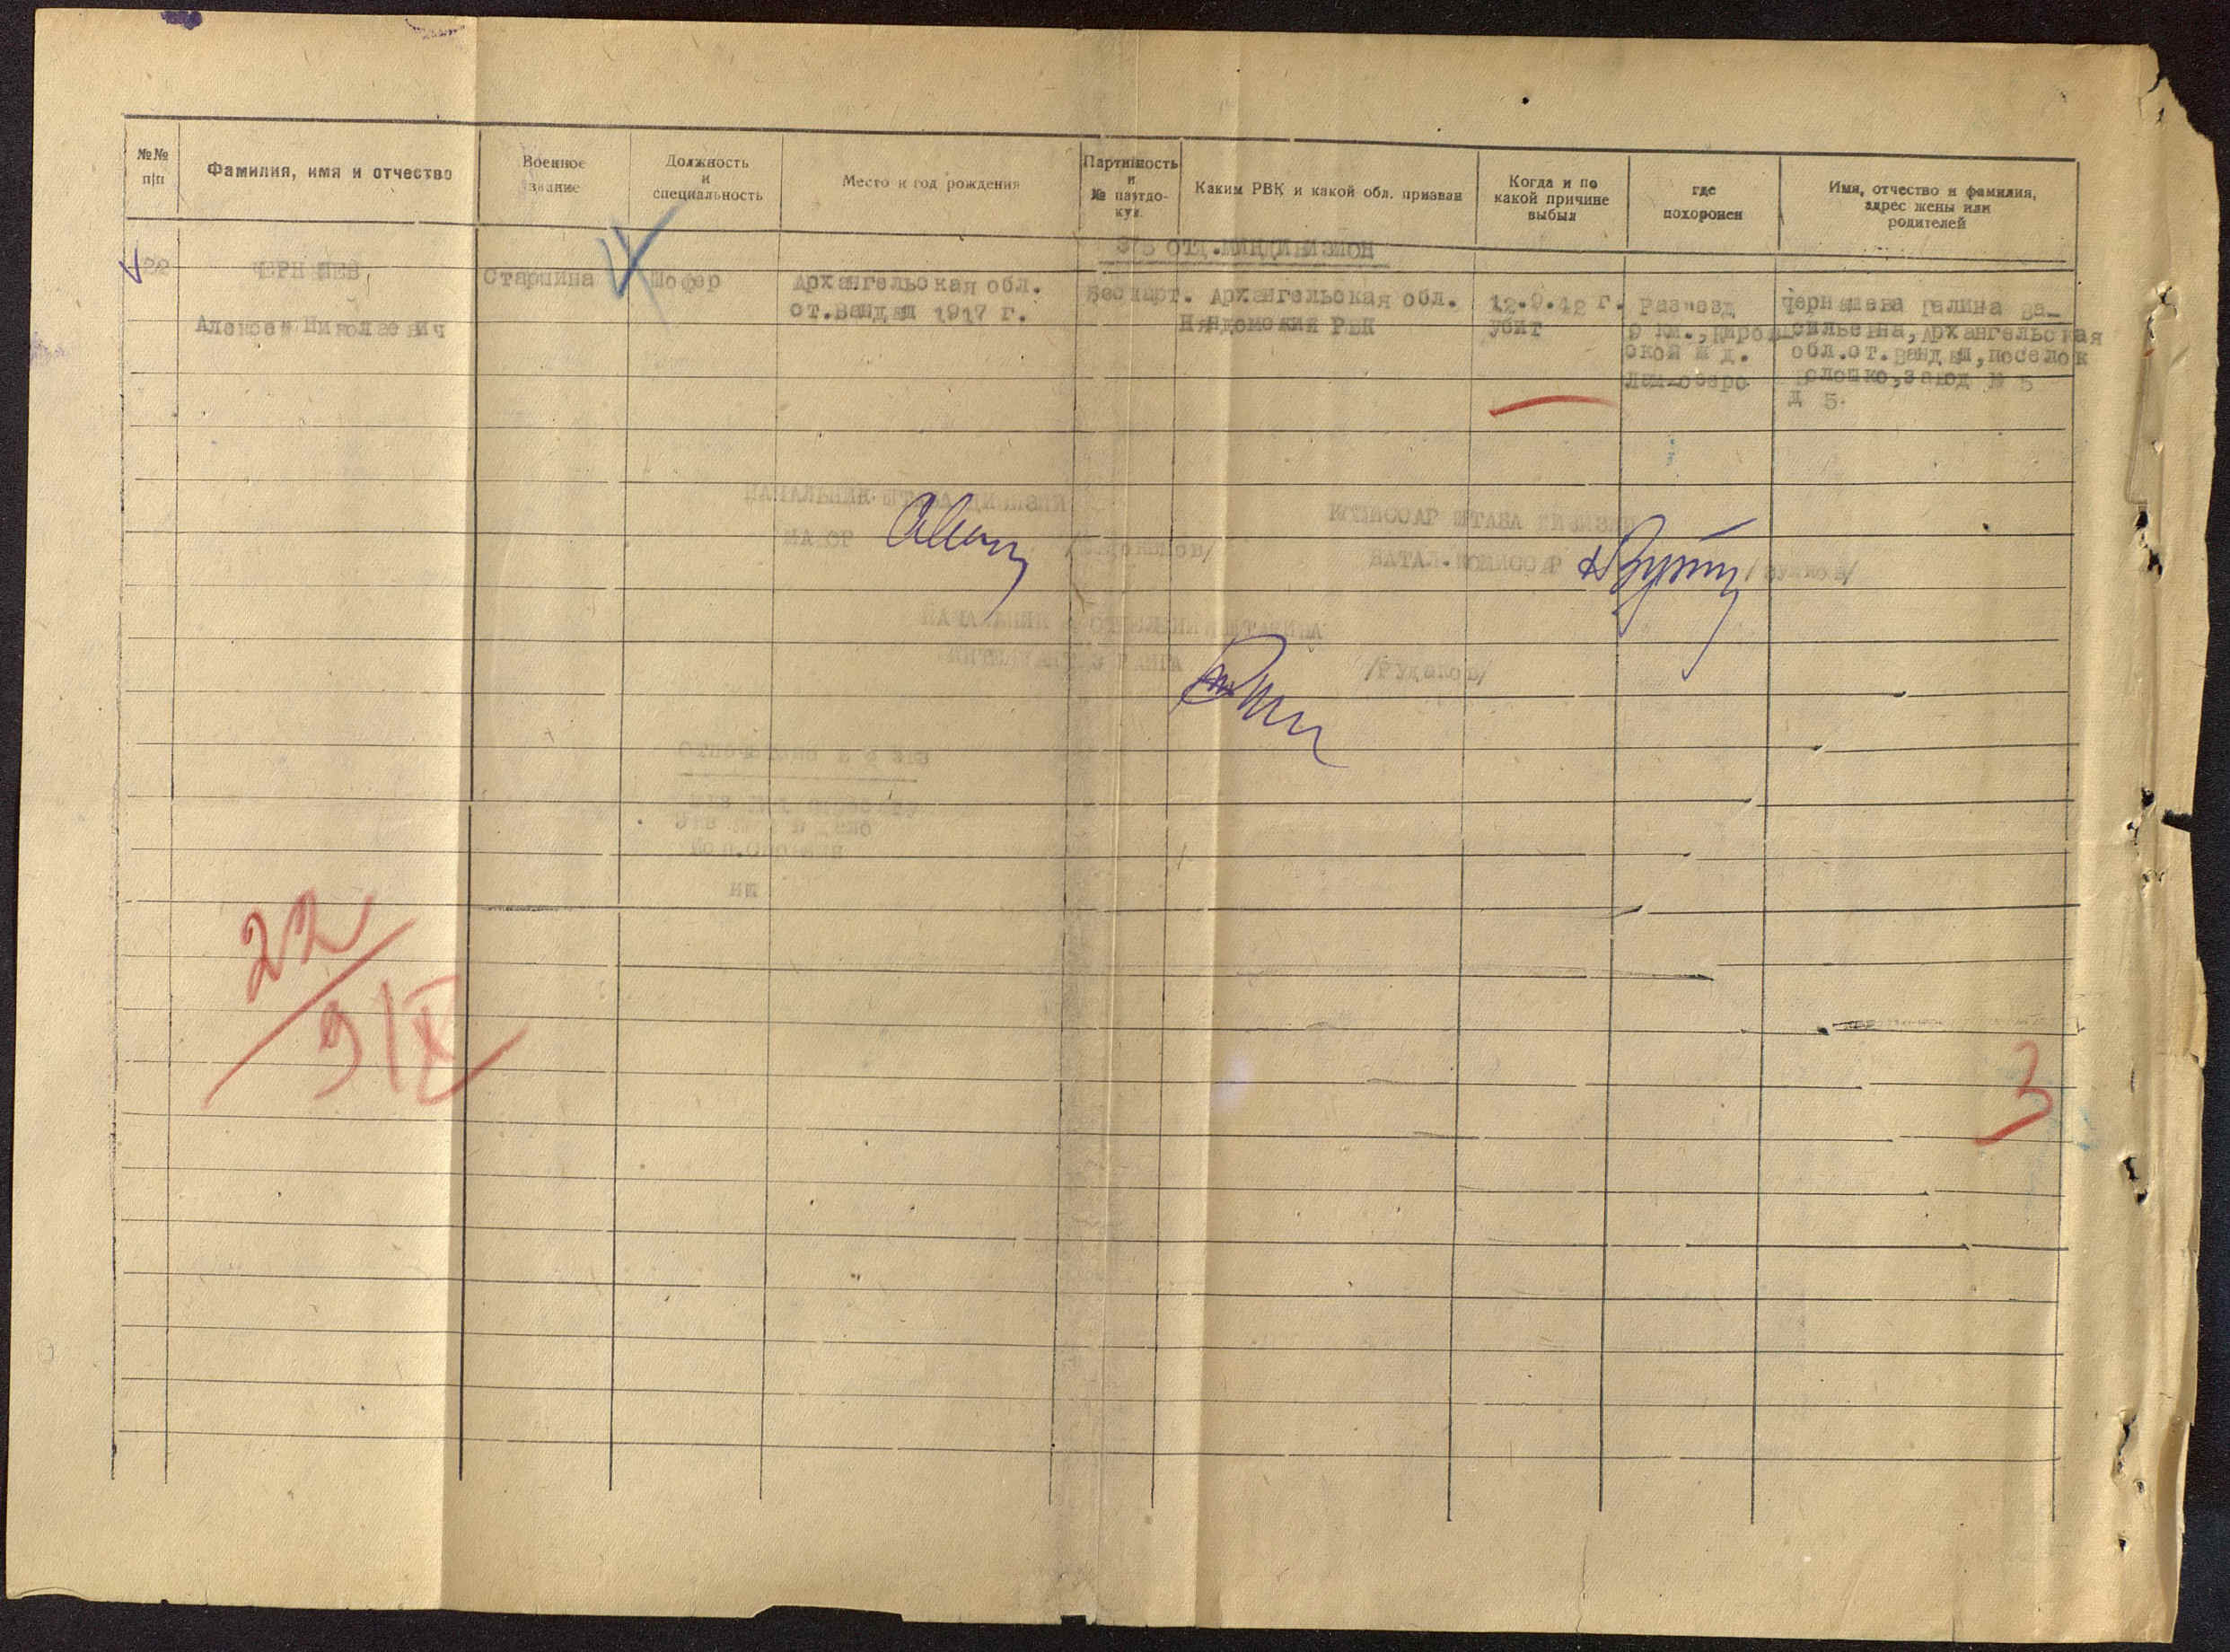 №№ п|п
Фамилия, имя и отчество
Военное звание
Должность и специальность
Место и год рождения
Партийность и № партдокум.
Каким РВК и какой обл. призван
Когда и по какой причине выбыл
где похоронен
Имя, отчество и фамилия, адрес жены или родителей
ОТД. МИНДИВИЗИОН
22
Алексей Николаевич
Старшина
Шофер
Архангельская обл.
ст. Вандыш 1917 г.
Беспарт.
Архангельская обл.
Няндомский РВК
12.9.42 г.
убит
Разъезд
9 км., Киров
ской ж д.
Чернышева Галина Ва-
сильевна, Архангельская
обл. ст. Вандыш, поселок
завод № 5
д 5.
НАЧАЛЬНИК ШТАБА ДИВИЗИИ
МАЙОР
КОМИССАР ШТАБА ДИВИЗИИ
БАТАЛ. КОМИССАР
НАЧАЛЬНИК ОТДЕЛЕНИЯ ШТАДИВА
ИНТЕНДАНТ 3 РАНГА
/Рудаков/
Отпечатано в 2 экз
нш
22
9/IX
3